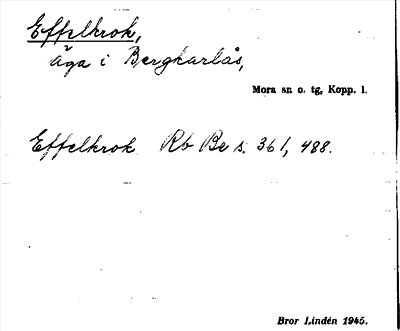 Effelkrok,
äga i Bergkarlås,
Mora sn o. tg, Kopp. l.
Effelkrok Rb Be s. 361, 488.
Bror Lindén 1945.